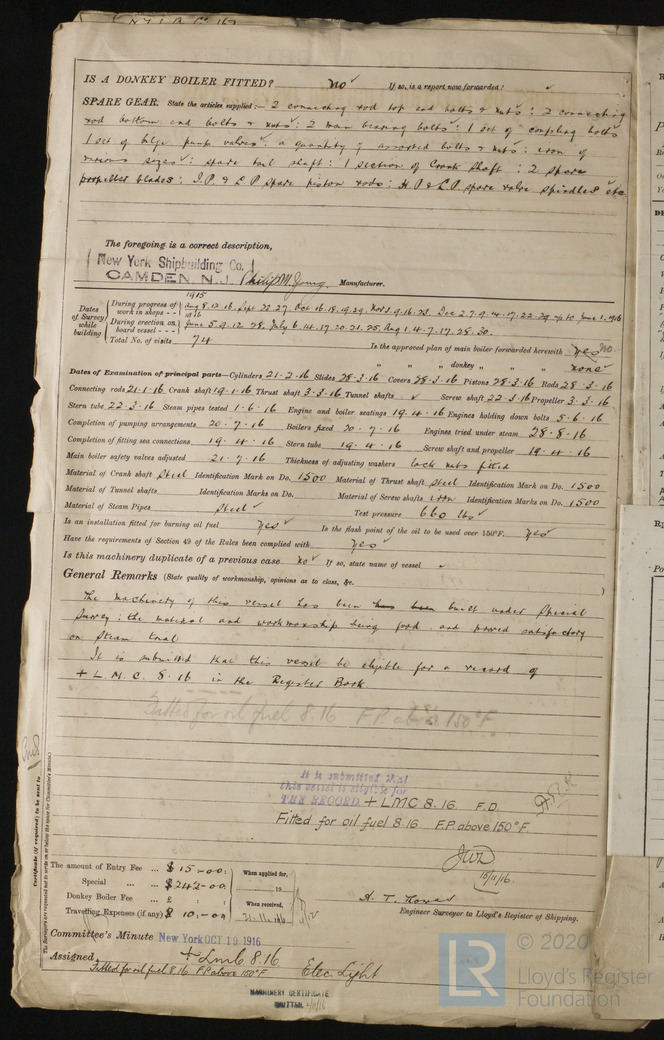 IS A DONKEY BOILER FITTED? no If so, is a report now forwarded?
SPARE GEAR. State the articles supplied:— 2 connecting rod top end bolts & nuts : 2 connecting
rod bottom end bolts & nuts : 2 main bearing bolts : 1 set of coupling bolts
1 set of bilge pump valves : a quantity of assorted bolts & nuts : iron of
various sizes : spare tail shaft : 1 section of Crank shaft : 2 spare
propeller blades : I.P. & L.P spare piston rods : H.P & L.P spare valve spindles etc.
The foregoing is a correct description,
New York Shipbuilding Co.
CAMDEN, N. J. Philip M. Young Manufacturer.
Dates of Survey while building
1915
During progress of work in shops - - Aug 8. 12. 16. Sept 22 27. Oct 16. 18. 19. 29. Nov 3. 9. 16. 23. Dec 2. 7. 9. 14. 17. 22. 29 June 1. 1916
1916
During erection on board vessel - - - June 5. 9. 12. 28. July 6. 14. 17. 20. 21. 25. Aug 1. 4. 7. 17. 28. 30.
Total No. of visits 74
Is the approved plan of main boiler forwarded herewith Yes No.
" " " donkey " " " none
Dates of Examination of principal parts—Cylinders 21.2.16 Slides 28.3.16 Covers 28.3.16 Pistons 28.3.16 Rods 28.3.16
Connecting rods 21.1.16 Crank shaft 19.1.16 Thrust shaft 3.3.16 Tunnel shafts Screw shaft 22.3.16 Propeller 3.3.16
Stern tube 22.3.16 Steam pipes tested 1.6.16 Engine and boiler seatings 19.4.16 Engines holding down bolts 5.6.16
Completion of pumping arrangements 20.7.16 Boilers fixed 20.7.16 Engines tried under steam 28.8.16
Completion of fitting sea connections 19.4.16 Stern tube 19.4.16 Screw shaft and propeller 19.4.16
Main boiler safety valves adjusted 21.7.16 Thickness of adjusting washers lock nuts fitted
Material of Crank shaft Steel Identification Mark on Do. 1500 Material of Thrust shaft Steel Identification Mark on Do. 1500
Material of Tunnel shafts Identification Marks on Do. Material of Screw shafts iron Identification Marks on Do. 1500
Material of Steam Pipes Steel Test pressure 660 lbs
Is an installation fitted for burning oil fuel Yes Is the flash point of the oil to be used over 150°F. Yes
Have the requirements of Section 49 of the Rules been complied with Yes
Is this machinery duplicate of a previous case no If so, state name of vessel
General Remarks (State quality of workmanship, opinions as to class, &c.
The machinery of this vessel has been has been built under Special
Survey : the material and workmanship being good and proved satisfactory
on steam trial
It is submitted that this vessel be eligible for a record of
+ L.M.C. 8.16 in the Register Book
Fitted for oil fuel 8.16 F.P. above 150°F.
It is submitted that
this vessel is eligible for
THE RECORD. + LMC 8.16 F.D.
Fitted for oil fuel 8.16 F.P. above 150°F.
JWD
15/11/16.
Certificate (if required) to be sent to
The Surveyors are requested not to write on or below the space for Committee's Minute.
The amount of Entry Fee ... $ 15-00
Special ... ... $ 242-00
Donkey Boiler Fee ... £ : :
Travelling Expenses (if any) $ 10.-00
When applied for,
19
When received,
Engineer Surveyor to Lloyd's Register of Shipping.
Committee's Minute New York OCT 19 1916
Assigned + Lmc 8.16
Fitted for oil fuel 8.16. F.P. above 150°F Elec Light
MACHINERY CERTIFICATE
WRITTEN
LR
© 2020
Lloyd's Register
Foundation